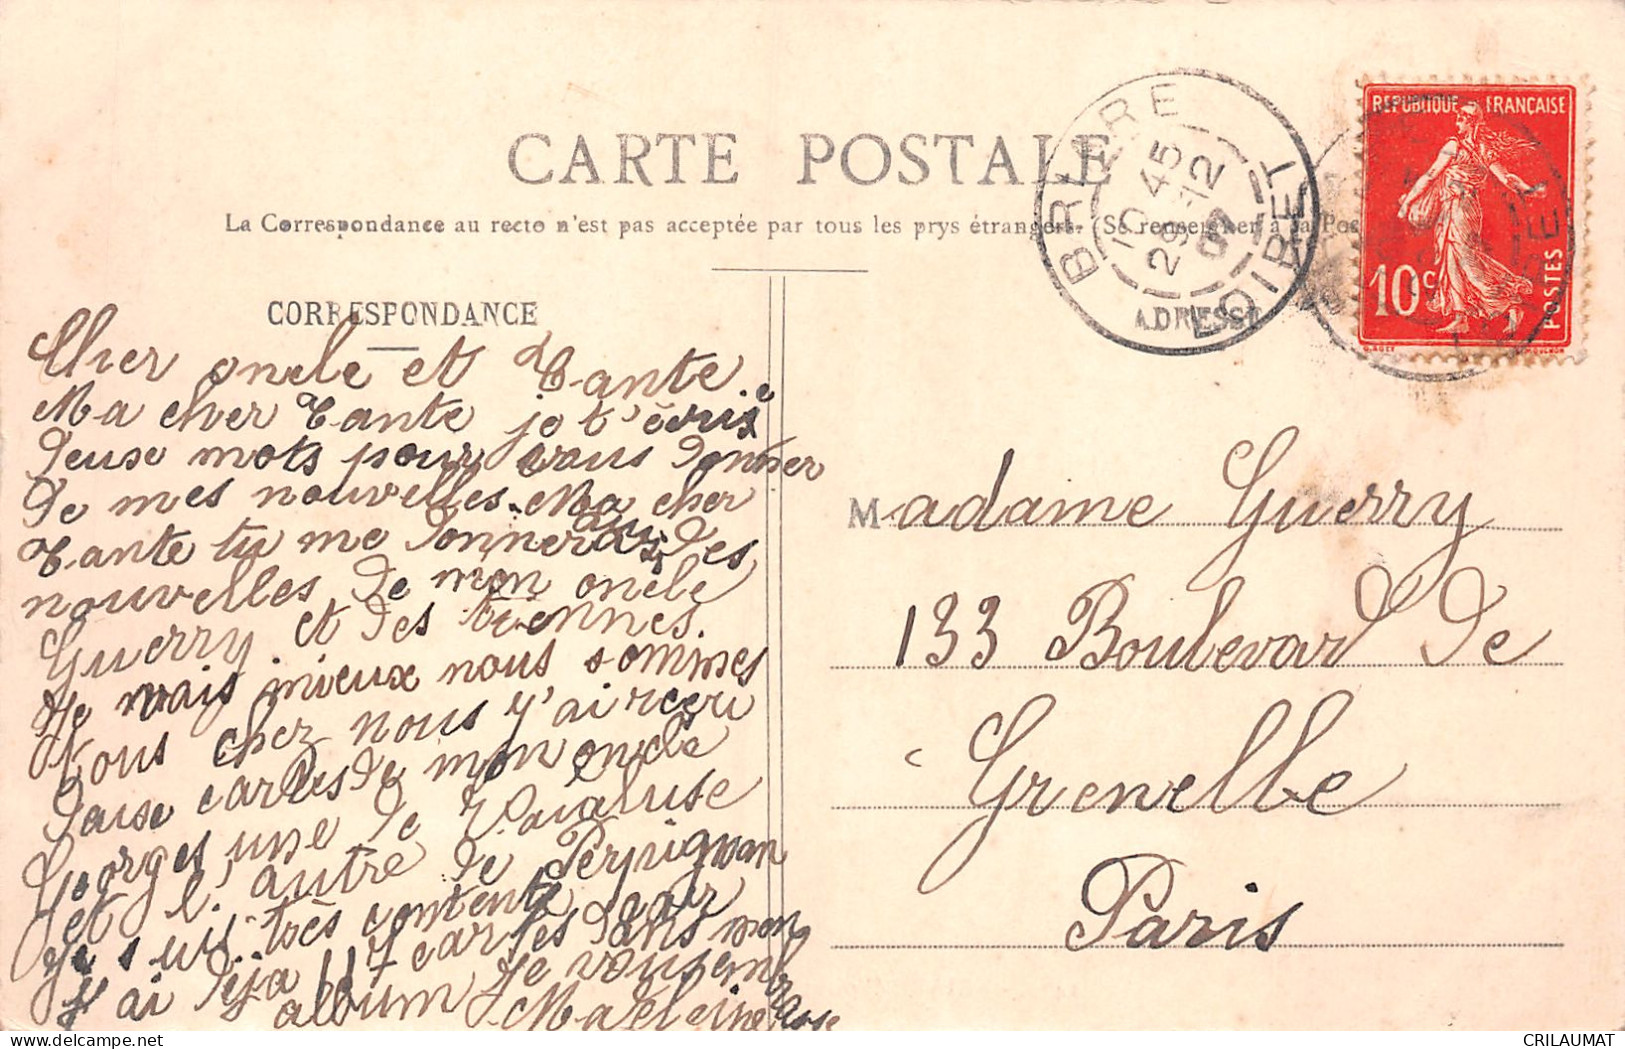 CARTE POSTALE
La Correspondance au recto n'est pas acceptée par tous les prys étrangers. (Se renseigner à la Pos
CORRESPONDANCE
ADRESSE
BRIARE
10 45
29 -12
07
LOIRET
REPUBLIQUE FRANÇAISE
10c
POSTES
LOIRET
Cher oncle et Tante
Ma cher Tante je t'écris
deuse mots pour vous donner
de mes nouvelles. Ma cher
Tante tu me donneras des
nouvelles de mon oncle
Guerry et des tiennes.
Je vais mieux nous sommes
tous chez nous j'ai reçeu
dause cartes de mon oncle
Georges une de Vaucluse
et l'autre de Perpignan
je suis très contente
j'ai déja 117 cartes dans mon
album Je vous embrasse
Madeleine
Madame Guerry
133 Boulevard de
Grenelle
Paris
CRILAUMAT